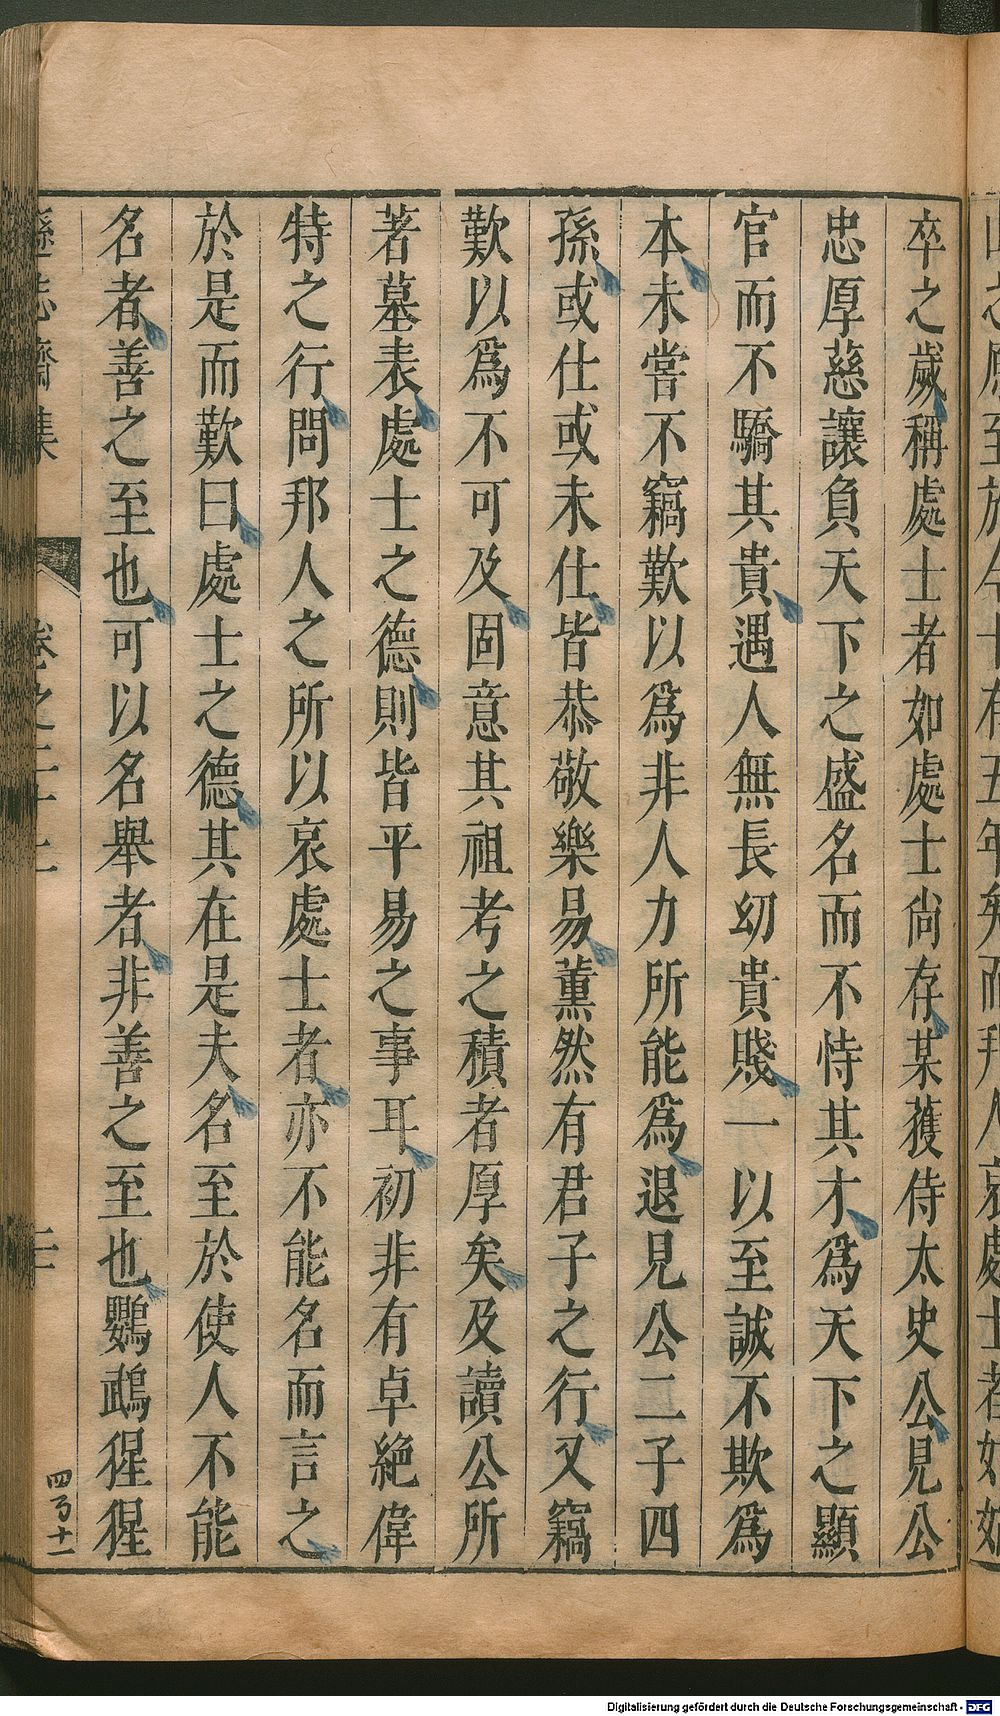 山之原至於今十有五年矣而邦人哀處士者如始
卒之歲稱處士者如處士尙存某獲侍太史公見公
忠厚慈讓負天下之盛名而不恃其才爲天下之顯
官而不驕其貴遇人無長幼貴賤一以至誠不欺爲
本未嘗不竊歎以爲非人力所能爲退見公二子四
孫或仕或未仕皆恭敬樂易薰然有君子之行又竊
歎以爲不可及固意其祖考之積者厚矣及讀公所
著墓表處士之德則皆平易之事耳初非有卓絶偉
特之行問邦人之所以哀處士者亦不能名而言之
於是而歎曰處士之德其在是夫名至於使人不能
名者善之至也可以名舉者非善之至也鸚鵡猩猩
遜志齋集 卷之二十二
四百十一
Digitalisierung gefördert durch die Deutsche Forschungsgemeinschaft - DFG